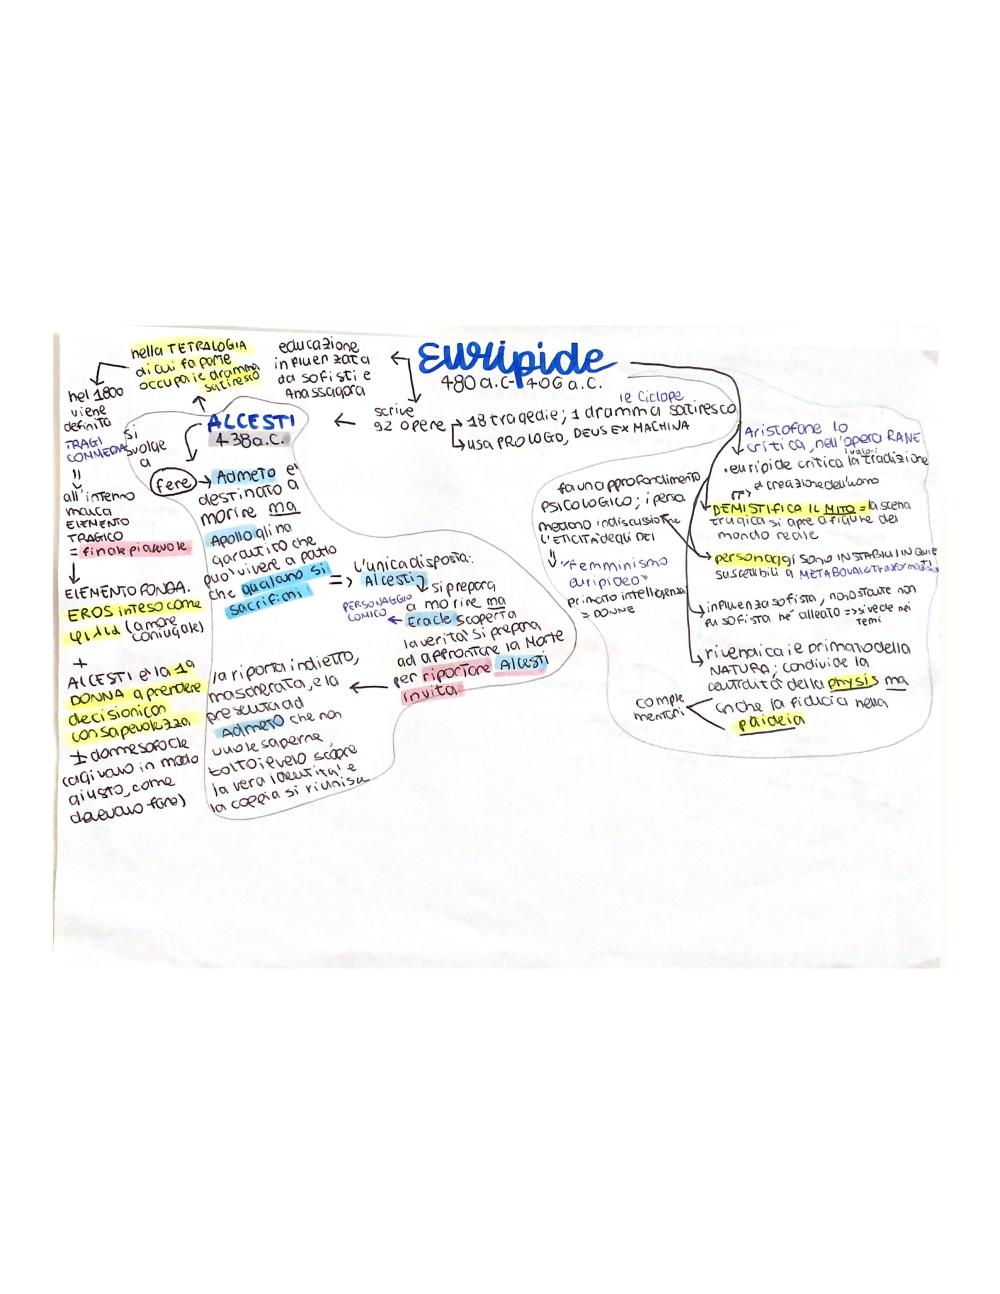 Euripide
480 a.C-406 a.C.
educazione
influenzata
da sofisti e
Anassagora
scrive
92 opere
le Ciclope
18 tragedie; 1 dramma satiresco
usa PROLOGO, DEUS EX MACHINA
nella TETRALOGIA
di cui fa parte
occupa ie dramma
satiresco
nel 1800
viene
definita
TRAGI
COMMEDIA
all'interno
manca
ELEMENTO
TRAGICO
= finale piacevole
ELEMENTO FONDA.
EROS inteso come
(amore
coniugale)
+
ALCESTI è la 1ª
DONNA a prendere
decisioni con
consapevolezza
≠ donne sofocle
(agivano in modo
giusto, come
dovevano fare)
ALCESTI
438 a.C.
si
svolge
a
fere
Admeto e'
destinato a
morire ma
Apollo gli ha
garantito che
puo' vivere a patto
che qualcuno si
sacrifichi
=> L'unica disposta:
Alcesti
si prepara
a morire ma
PERSONAGGIO
COMICO
Eracle scoperta
la verita' si prepara
ad affrontare la Morte
per riportare Alcesti
in vita
la riporta indietro,
mascherata, e la
presenta ad
Admeto che non
vuole saperne,
tolto ie velo scopre
la vera identita' e
la coppia si riunisce
Aristofane lo
critica, nell'opera RANE
valori
• euripide critica la tradizione
e creazione dell'uomo
DEMISTIFICA IL MITO = la scena
tragica si apre a figure del
mondo reale
personaggi sono INSTABILI, INQUIE
suscettibili a METABOLAI
influenza sofista, nonostante non
fu sofista ne' alleato => si vede nei
temi
rivendica ie primato della
NATURA; condivide la
centralita' della physis ma
anche la fiducia nella
paideia
comple
mentari
fa un approfondimento
PSICOLOGICO; i perso
mettono in discussione
L'ETICITA' degli DEI
"Femminismo
euripideo"
primato intelligenza
= DONNE